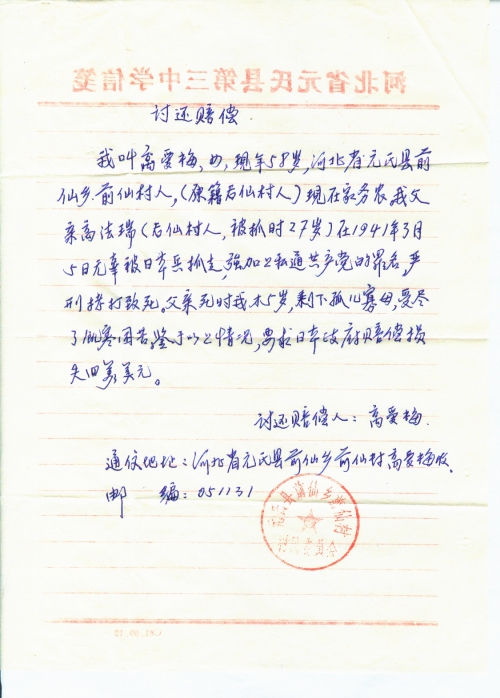 河北省元氏县第三中学信笺
讨还赔偿
我叫高爱梅,女,现年58岁,河北省元氏县前
仙乡前仙村人,(原籍后仙村人)现在家务农。我父
亲高法瑞(后仙村人,被抓时27岁)在1941年3月
5日无辜被日本兵抓走,强加上私通共产党的罪名,严
刑拷打致死。父亲死时我才5岁,剩下孤儿寡母,受尽
了饥寒困苦。鉴于以上情况,要求日本政府赔偿损
失四万美元。
讨还赔偿人:高爱梅.
通仪地址:河北省元氏县前仙乡前仙村高爱梅收.
邮 编:051131
元氏县前仙乡前仙村